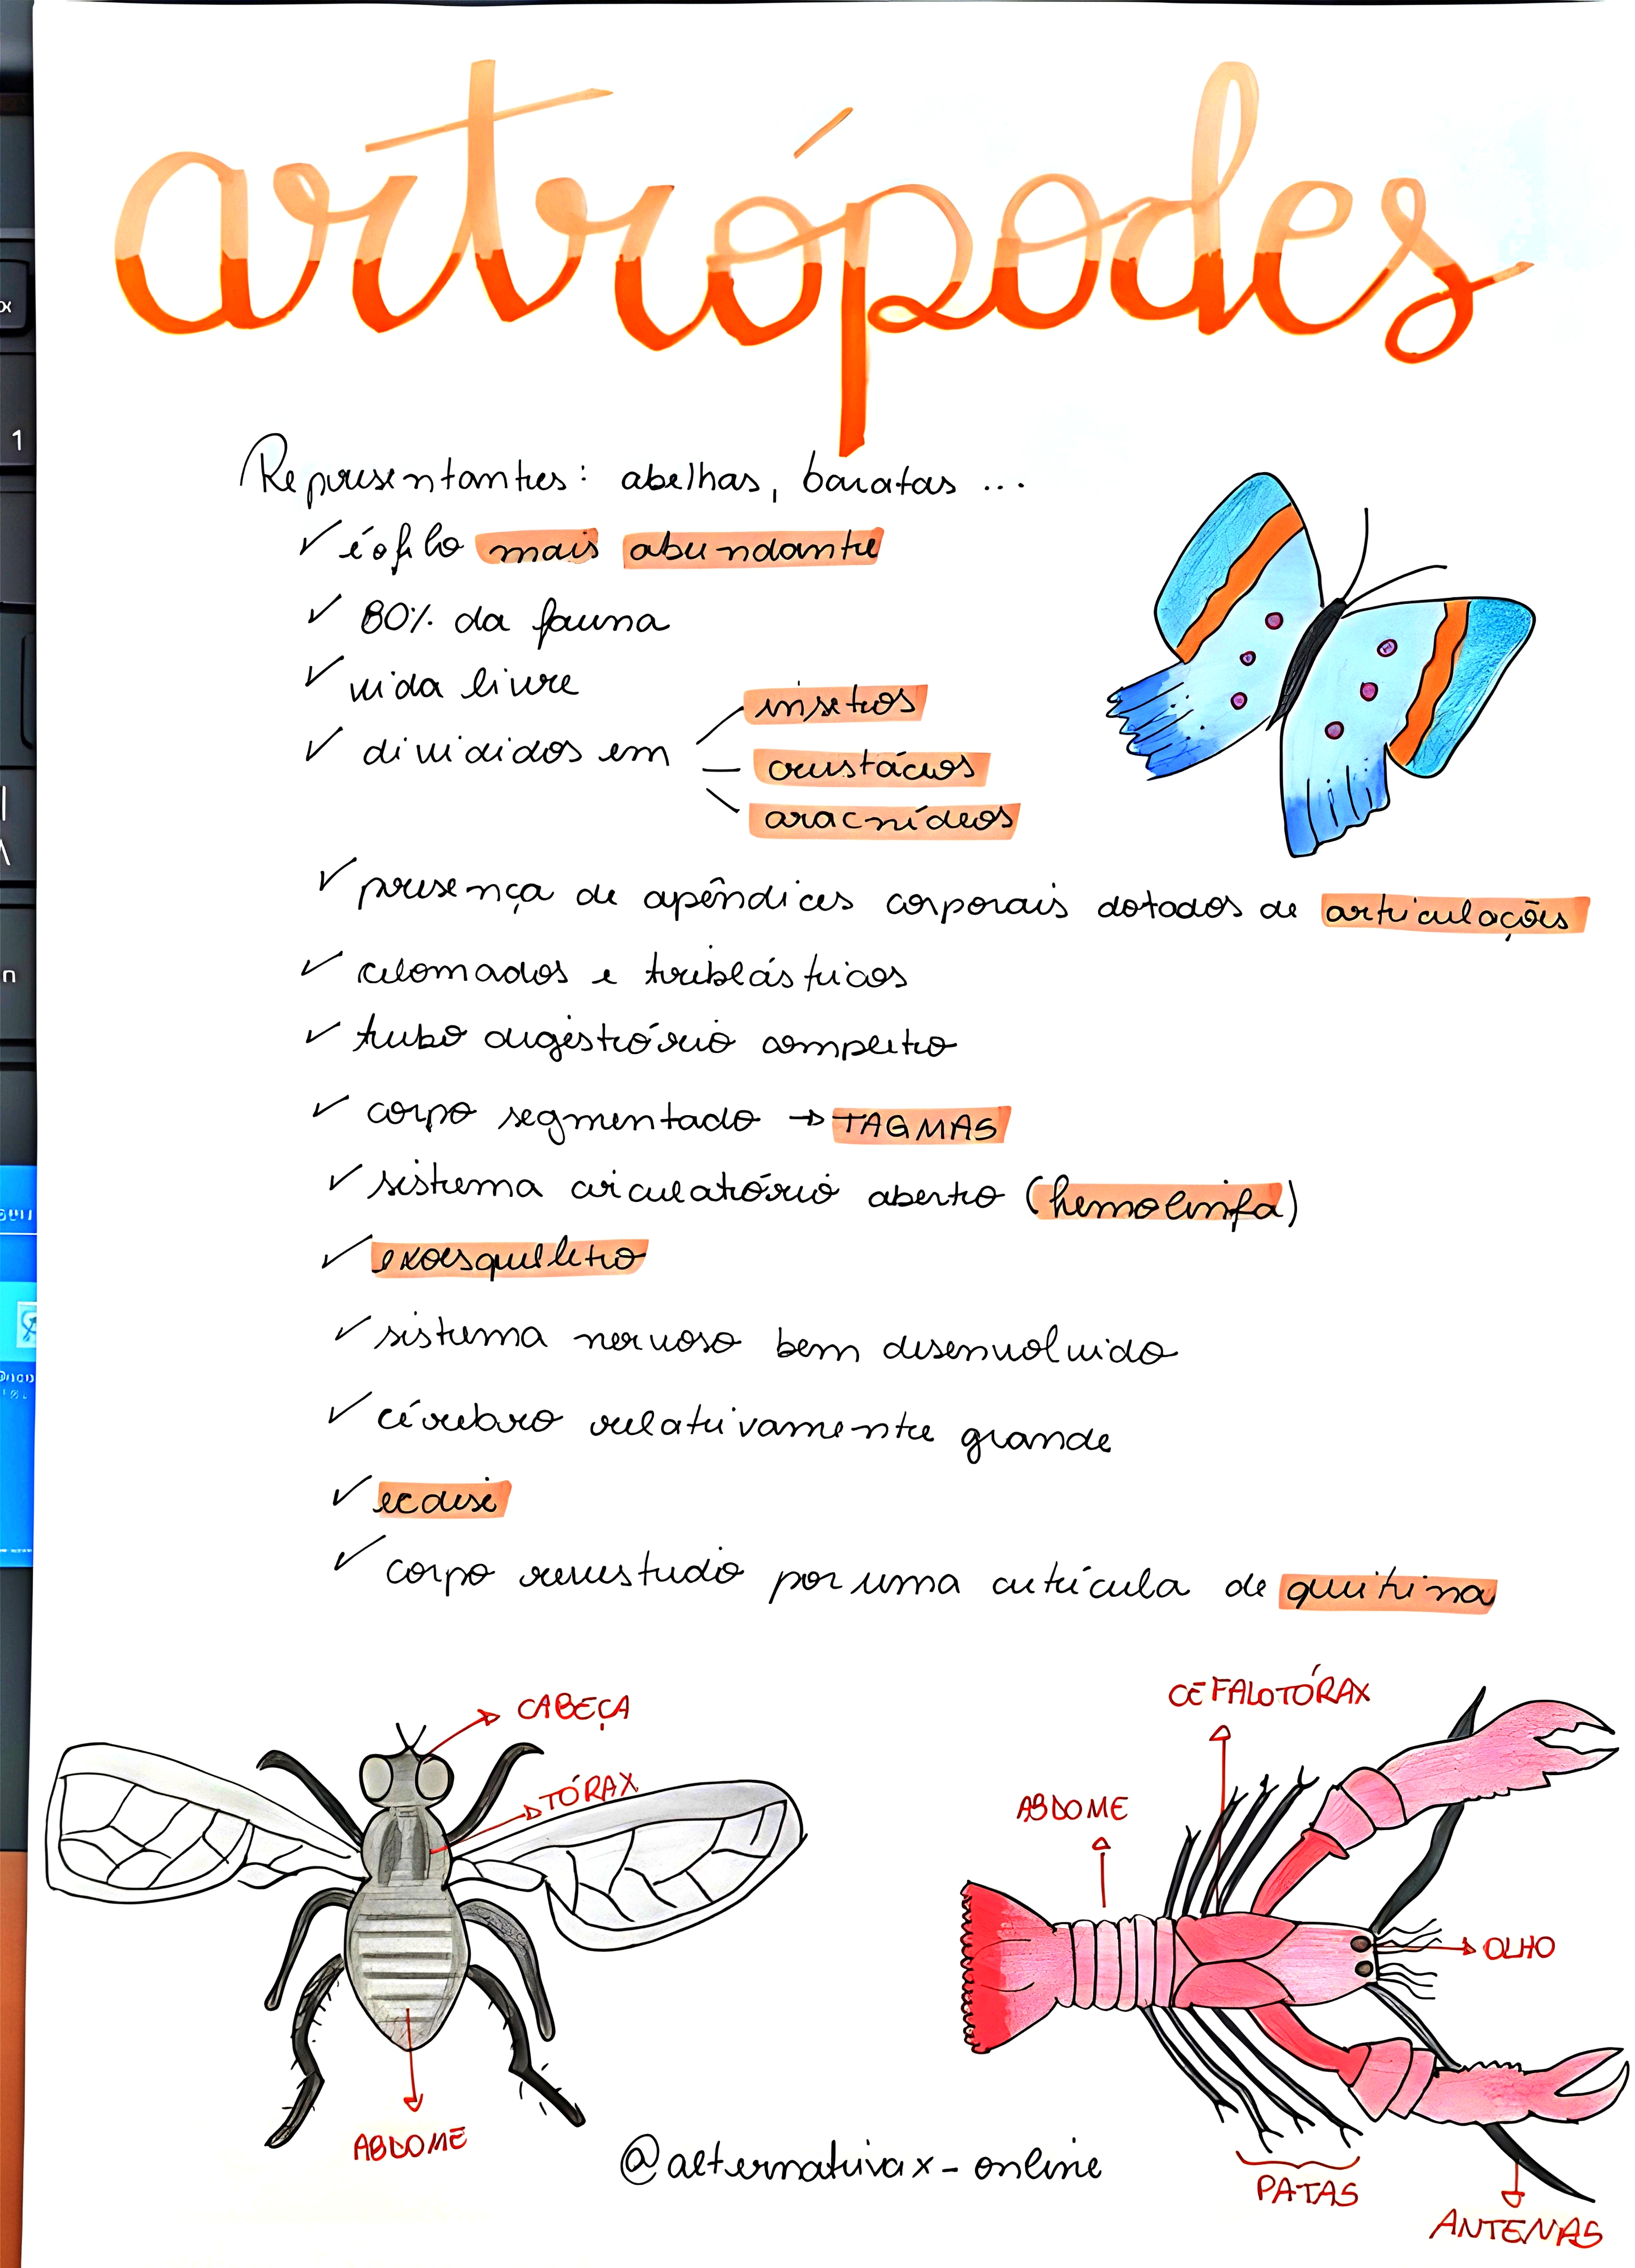 artrópodes
Representantes: abelhas, baratas ...
✓ é o filo mais abundante
✓ 80% da fauna
✓ vida livre
✓ divididos em
insetos
crustáceos
aracnídeos
✓ presença de apêndices corporais dotados de articulações
✓ celomados e triblásticos
✓ tubo digestório completo
✓ corpo segmentado → TAGMAS
✓ sistema circulatório aberto (hemolinfa)
✓ exoesqueleto
✓ sistema nervoso bem desenvolvido
✓ cérebro relativamente grande
✓ ecdise
✓ corpo revestido por uma cutícula de quitina
CABEÇA
TÓRAX
ABDOME
CEFALOTÓRAX
ABDOME
OLHO
PATAS
ANTENAS
@alternativax_online